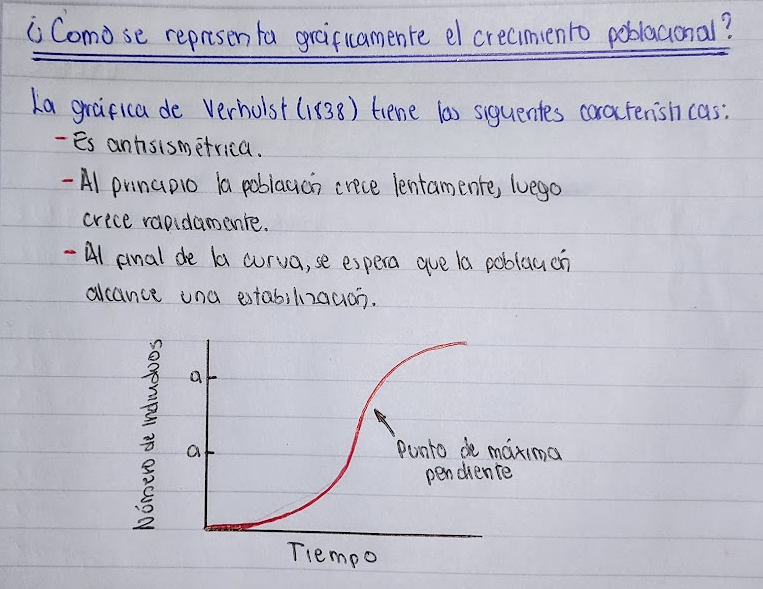 ¿Como se representa gráficamente el crecimiento poblacional?
La gráfica de Verhulst (1838) tiene las siguientes características:
- Es antisismétrica.
- Al principio la población crece lentamente, luego
crece rapidamente.
- Al final de la curva, se espera que la población
alcance una estabilización.
Número de Individuos
a
a
Punto de máxima
pendiente
Tiempo